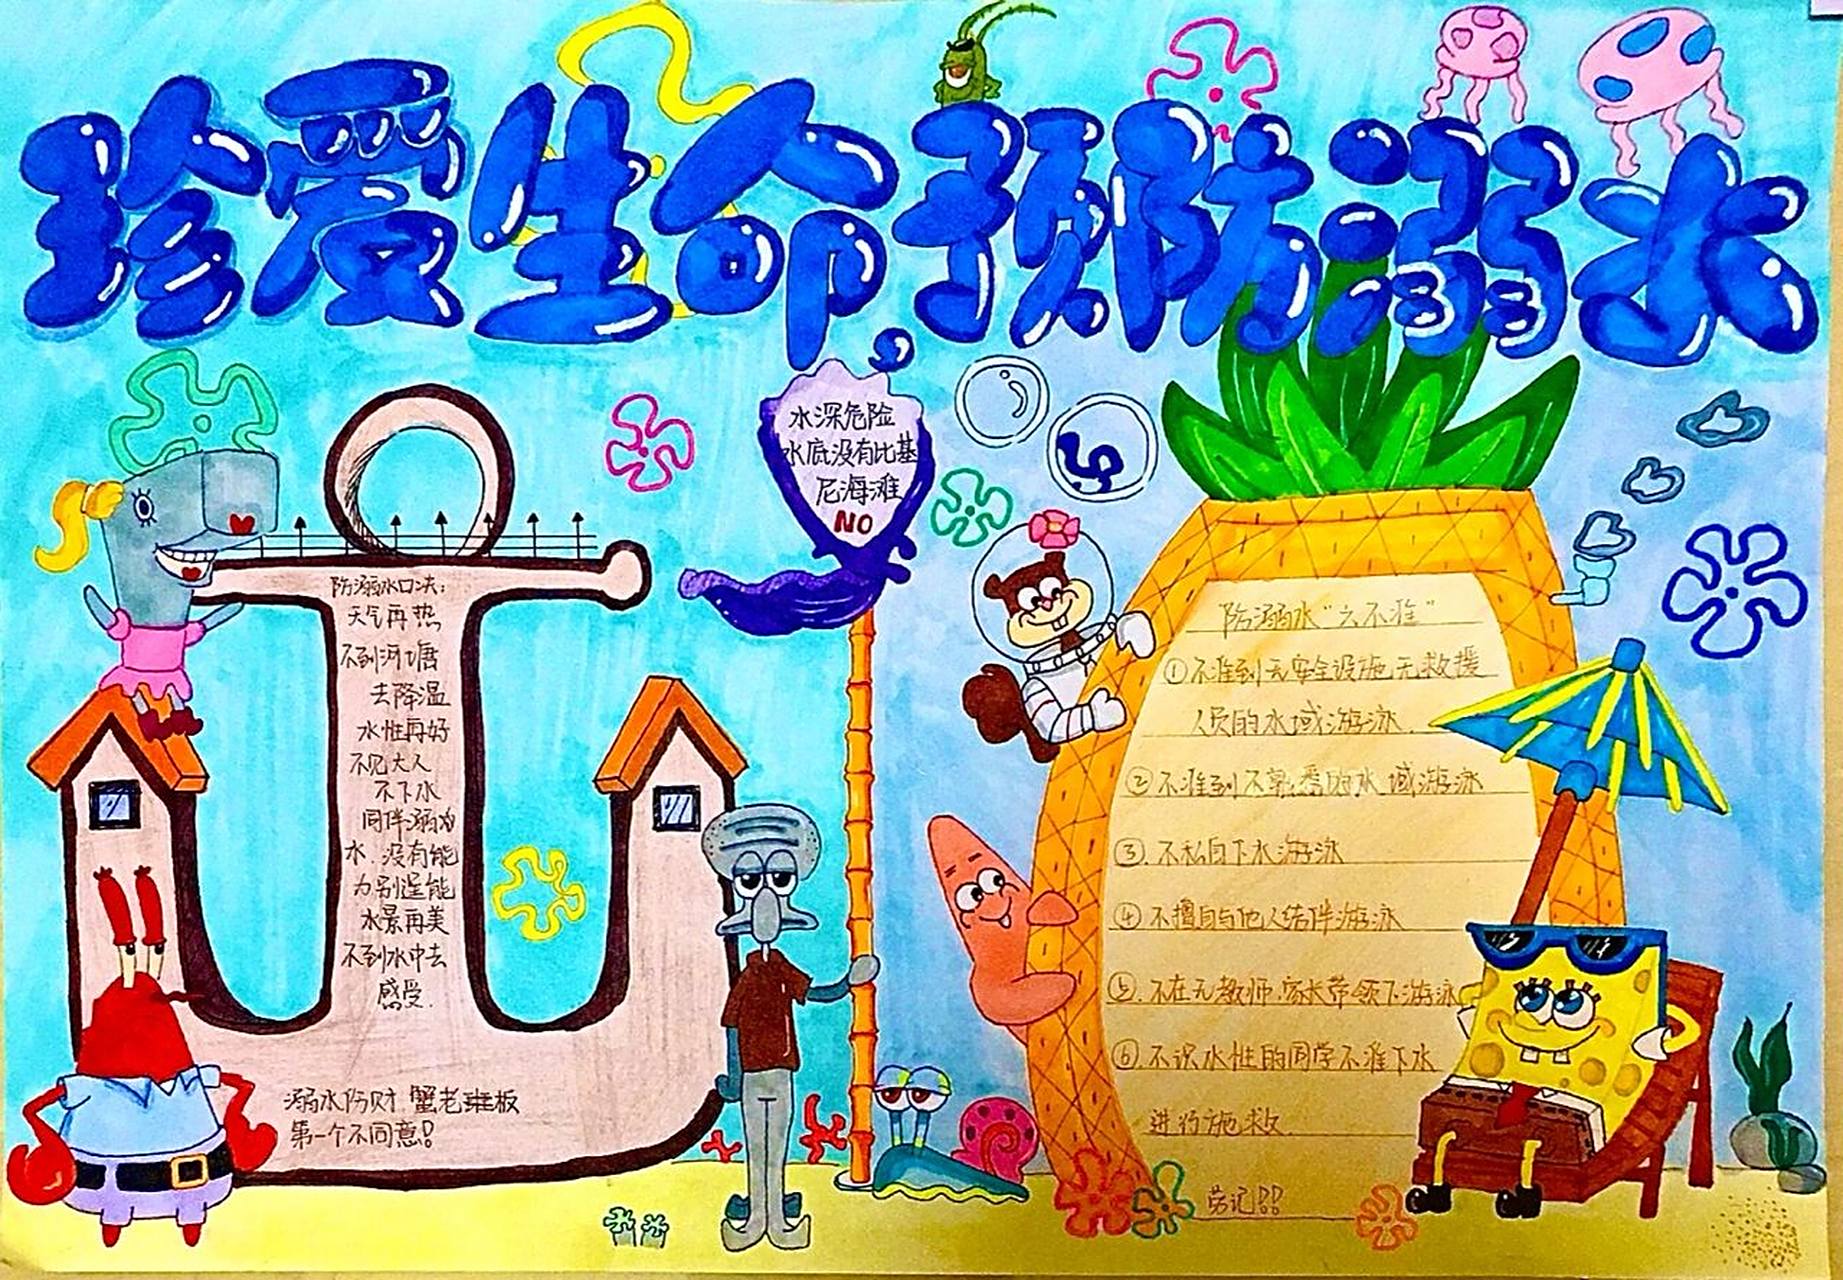 珍爱生命,预防溺水
水深危险
水底没有比基
尼海滩
NO
防溺水口决:
天气再热
不到河塘
去降温
水性再好
不见大人
不下水
同伴溺水
水.没有能
力别逞能
水景再美
不到水中去
感受.
溺水伤财 蟹老班板
第一个不同意!
防溺水“六不准”
①不准到无安全设施无救援
人员的水域游泳.
②不准到不熟悉的水域游泳
③.不私自下水游泳
④不擅自与他人结伴游泳
⑤.不在无教师.家长带领下游泳
⑥不识水性的同学不准下水
进行施救
劳记!!